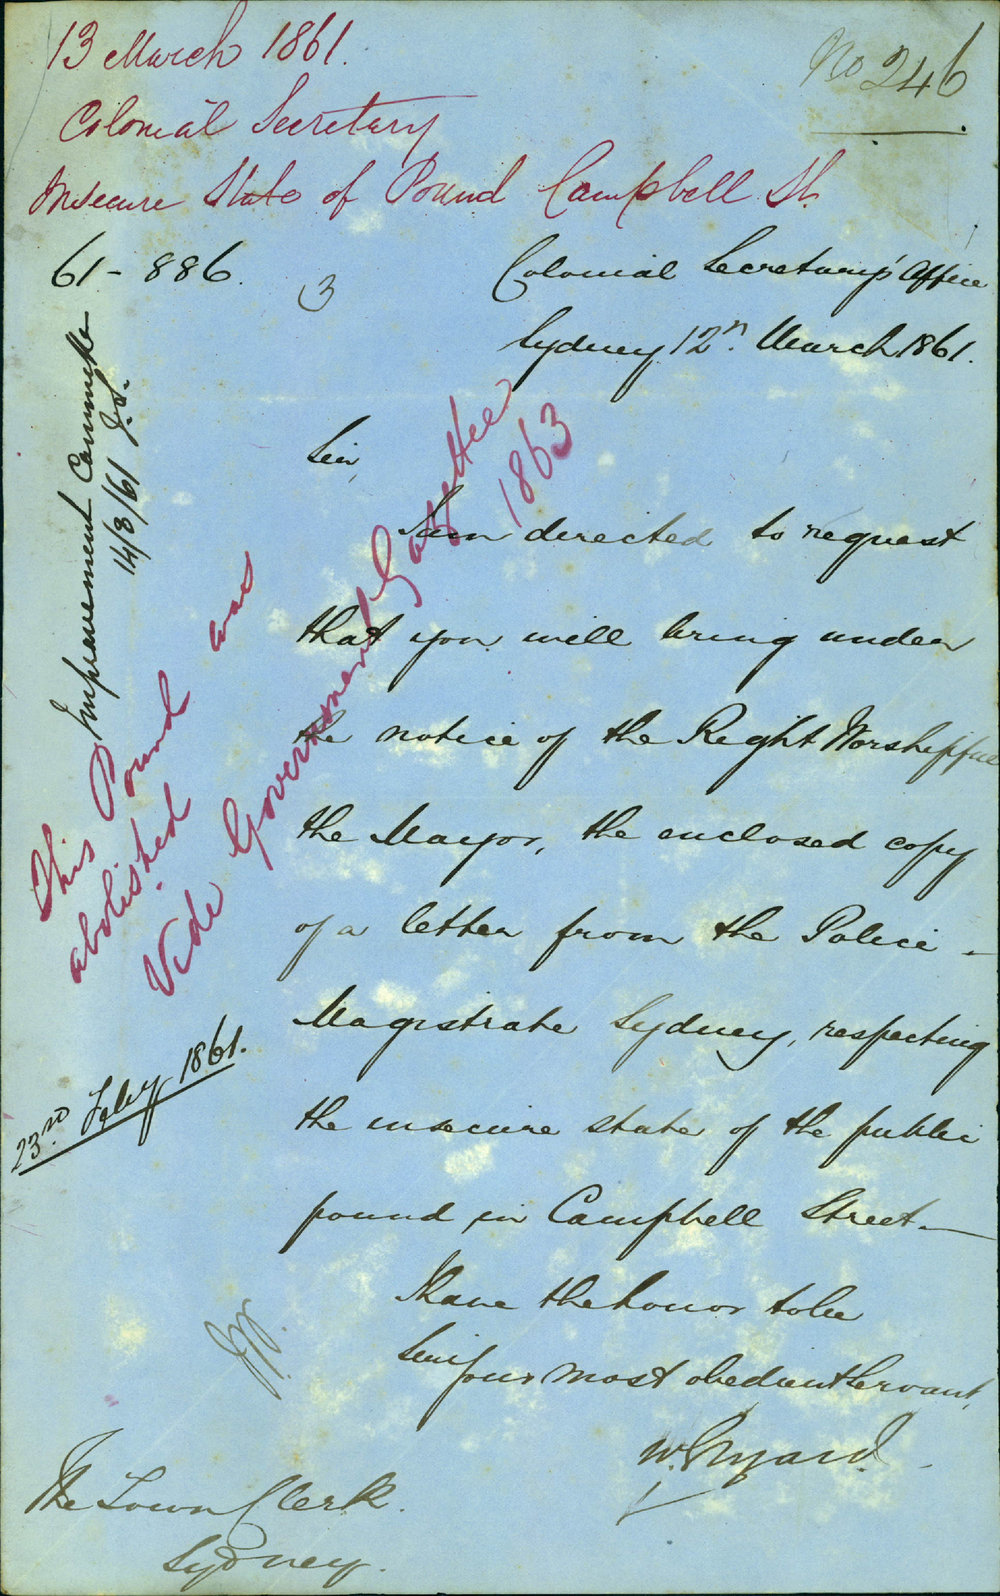 13 March 1861.
No 246
Colonial Secretary
Insecure State of Pound Campbell St.
61-886.
3
Colonial Secretary's Office
Sydney 12th March 1861.
Improvement Committee
14/3/61 J.S.
Sir,
I am directed to request
that you will bring under
the notice of the Right Worshipful
the Mayor, the enclosed copy
of a letter from the Police
Magistrate Sydney, respecting
the insecure state of the public
pound in Campbell Street.—
This Pound was
abolished
Vide Government Gazettee
1863
23rd Feby 1861.
I have the honor to be
Sir
Your most obedient Servant,
The Town Clerk.
Sydney.